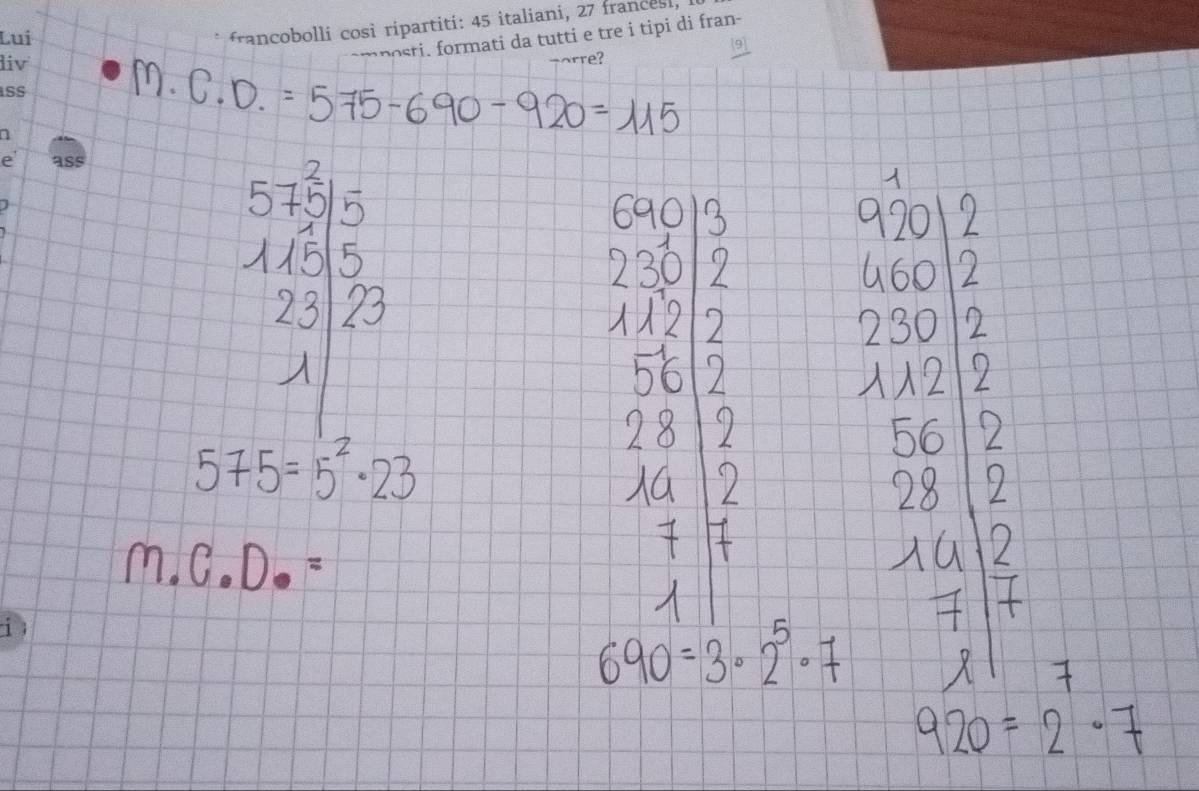 francobolli cosi ripartiti: 45 italiani, 27 francesi,
formati da tutti e tre i tipi di fran-
Lui
div
ass
n
e
ass
i
[9]
M.C.D. = 575-690-920=115
2
575|5
1
115|5
23|23
1
575=5²·23
M.C.D.=
690|3
1
230|2
1
112|2
1
56|2
28|2
14|2
7|7
1
690=3·2⁵·7
1
920|2
460|2
230|2
112|2
56|2
28|2
14|2
7|7
1
920=2⁷·7